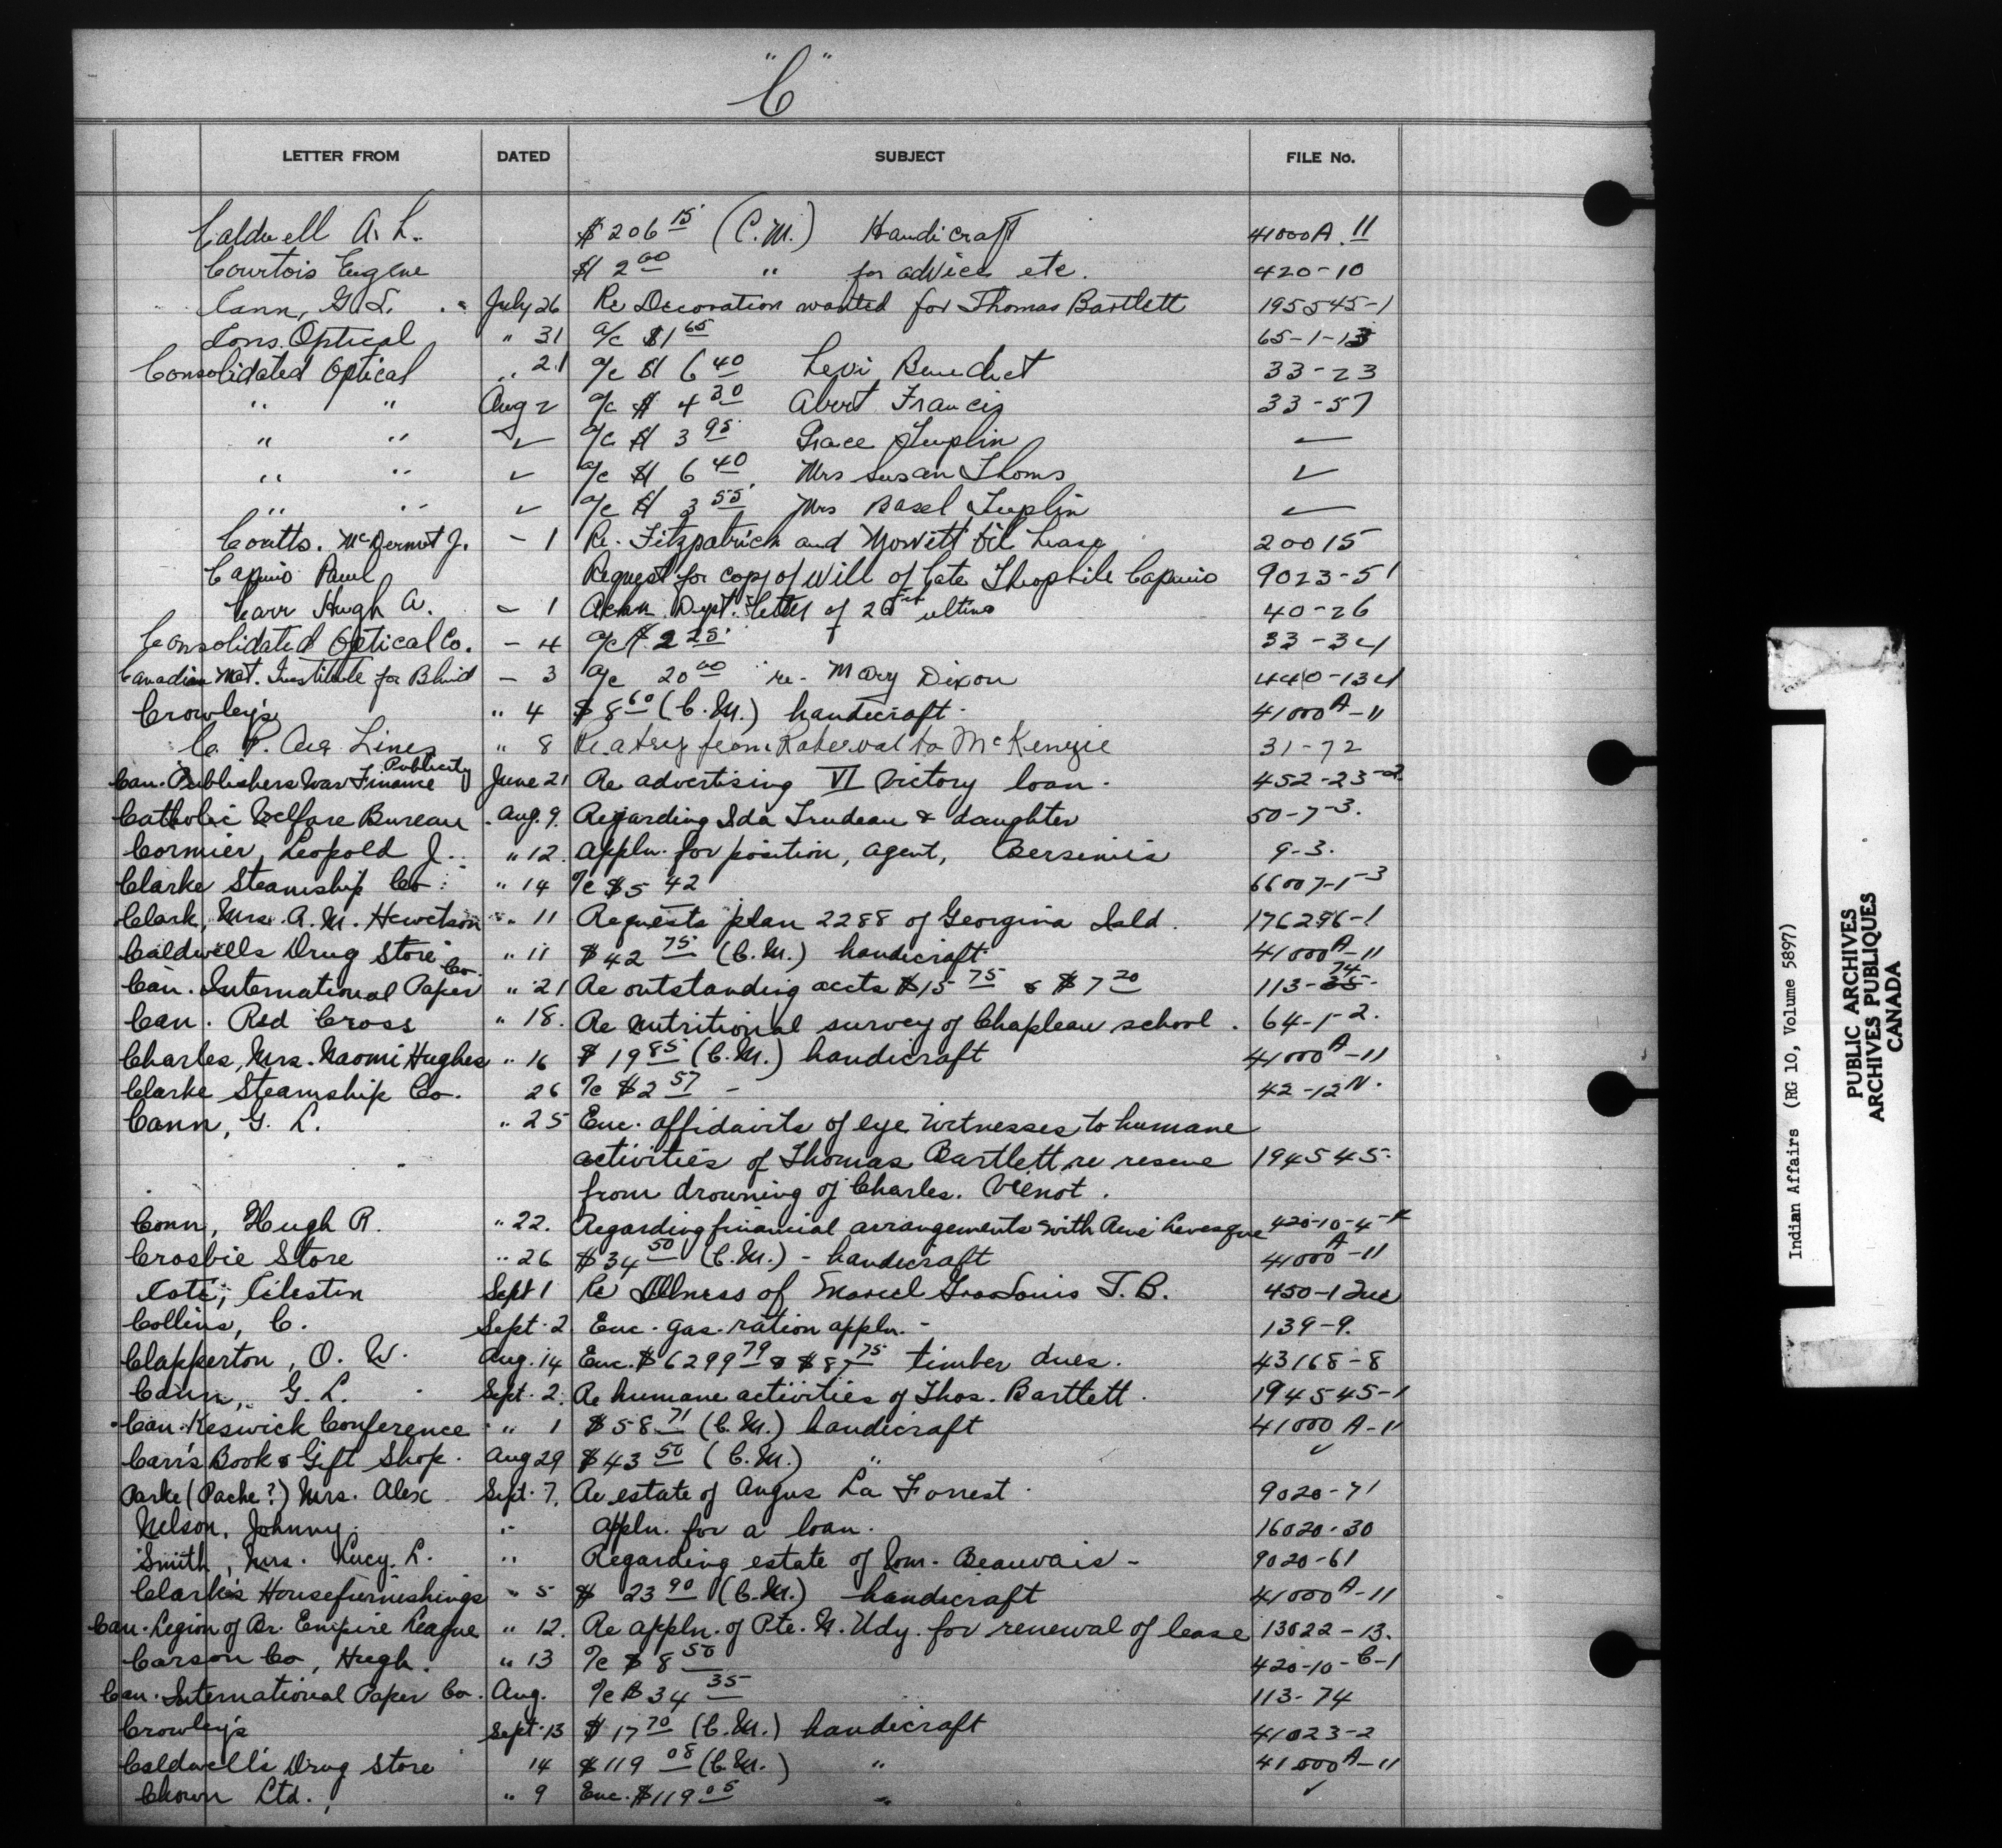 "C"
LETTER FROM DATED SUBJECT FILE No.
Caldwell A. L. $206 15 (C.M.) Handicraft 41000A.11
Courtois Eugene $2 00 " for advice etc. 420-10
Cann, G. L. July 26 Re Decoration wanted for Thomas Bartlett 195545-1
Cons. Optical " 31 a/c $1 65 65-1-13
Consolidated Optical " 21 a/c $ 6 40 Levi Benedict 33-23
" " Aug 2 a/c $ 4 30 Abert Francis 33-57
" " ✓ a/c $ 3 95 Grace Tuplin ✓
" " ✓ a/c $ 6 40 Mrs Susan Thoms ✓
" " ✓ a/c $ 3 55 Mrs Basel Tuplin ✓
Coutts. McDermot J. - 1 Re. Fitzpatrick and Mowitt Oil Lease 20015
Paul Request for copy of Will of late Theophile 9023-51
Carr Hugh A. - 1 Ackn. Dept. letter of 26 ultimo 40-26
Consolidated Optical Co. - 4 a/c $ 2 25 33-34
Canadian Nat. Institute for Blind - 3 a/c 20 00 re - Mary Dixon 440-134
Crowley's " 4 $8 60 (C.M.) handicraft 41000A-11
P. Air Lines " 8 Re a trip from Roberval to McKenzie 31-72
Can. Publishers War Finance Publicity June 21 Re advertising VI Victory loan. 452-23-2
Catholic Welfare Bureau Aug. 9. Regarding Ida Trudeau & daughter 50-7-3.
Cormier, Leopold J. " 12. Appln. for position, agent, Bersimis 9-3.
Clarke Steamship Co. " 14 a/c $5 42 66007-1-3
Clark, Mrs. A. M. Hewetson " 11 Requests plan 2288 of Georgina Isld. 176296-1
Caldwells Drug Store " 11 $42 75 (C.M.) handicraft 41000A-11
Can. International Paper Co. " 21 Re outstanding accts $15 75 & $7 20 113-35 74
Can. Red Cross " 18. Re Nutritional survey of Chapleau school. 64-1-2.
Charles, Mrs. Naomi Hughes " 16 $19 85 (C.M.) handicraft 41000A-11
Clarke Steamship Co. 26 a/c $2 57 - 42-12N.
Cann, G. L. " 25 Enc. affidavits of eye witnesses to humane
activities of Thomas Bartlett, re rescue 194545.
from drowning of Charles.
Conn, Hugh R. " 22. Regarding financial arrangements with René Levesque 420-10-4-
Crosbie Store " 26 $34 50 (C.M.) - handicraft 41000A-11
Cote, Celestin Sept 1 Re Illness of Marcel GrosLouis T.B. 450-1 Que
Collins, C. Sept. 2 Enc. gas. ration appln. - 139-9.
Clapperton, O. W. Aug. 14 Enc. $6299 79 & $87 75 timber dues. 43168-8
Cann, G. L. Sept. 2. Re humane activities of Thos. Bartlett. 194545-1
Can. Keswick Conference " 1 $58 71 (C.M.) handicraft 41000 A-11
Carr's Book & Gift Shop. Aug 29 $43 50 (C.M.) " ✓
Parke (Pache?) Mrs. Alex Sept. 7. Re estate of Angus La Forrest 9020-71
Nelson, Johnny. " Appln. for a loan. 16020-30
Smith, Mrs. Lucy. L. " Regarding estate of Beauvais - 9020-61
Clark's Housefurnishings " 5 $ 23 90 (C.M.) handicraft 41000A-11
Can. Legion of Br. Empire League " 12. Re appln. of Pte. N. Udy. for renewal of lease 13022-13.
Carson Co, Hugh. " 13 a/c $8 50 420-10-C-1
Can. International Paper Co. Aug. a/c $34 35 113-74
Crowley's Sept. 13 $17 70 (C.M.) handicraft 41023-2
Caldwell's Drug Store 14 $119 08 (C.M.) " 41000A-11
Chown Ltd. " 9 Enc. $119 05 " ✓
Indian Affairs (RG 10, Volume 5897)
PUBLIC ARCHIVES
ARCHIVES PUBLIQUES
CANADA